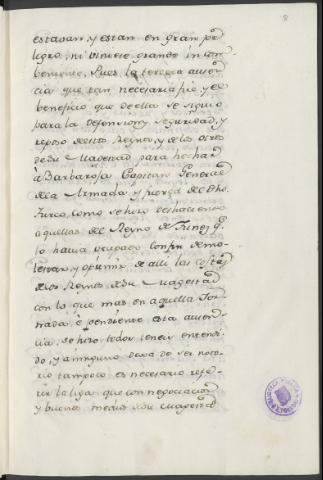 8
estavan, y estan en gran pe-
ligro, ni viniese grande incon-
beniente, Pues la tercera ausen-
cia que tan necesaria fue, y el
beneficio que de ella se siguio
para la defension, y seguridad, y
reposo de estos Reynos, y de los otros
de Su Magestad para hechar
à Barbaroja Capitan General
de la Armada, y fuerza del dho.
Turco, como se hizo deshaciendo
aquellas del Reyno de Tunez q.
lo havia ocupado con fin de mo-
lestar, y oprimir de alli las costas
de los Reynos de Su Magestad
con lo que mas en aquella Jor-
nada, è pendiente esta ausen-
cia, se hizo todos teneis entendi-
do, y à ninguno deva de ser noto-
rio tampoco es necesario refe-
rir la liga que con negociacion
y buenos medios de Su Magestad